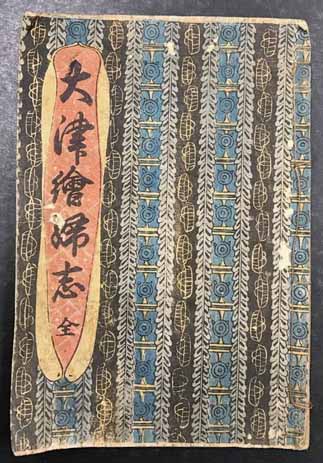 大津繪婦志全